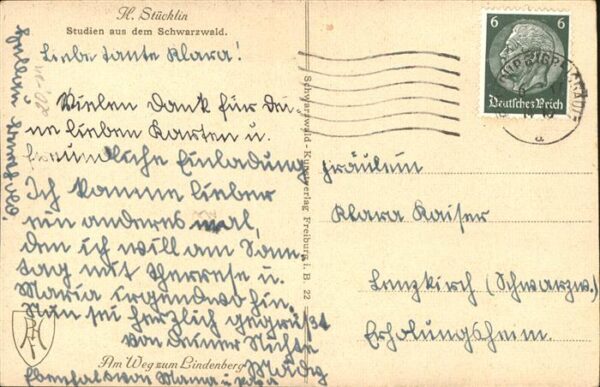 H. Stücklin
Studien aus dem Schwarzwald.
Liebe Tante Klara!
Vielen Dank für dei-
ne lieben Karten u.
freundliche Einladung
Ich komme lieber
ein anderes mal,
den ich will am Sonn-
tag mit Therese u.
Maria irgendwo hin.
Nun sei herzlich gegrüßt
von deiner Nichte
Ebenfalls von Mama u.
Am Weg zum Lindenberg
Schwarzwald-Kunstverlag Freiburg i. B. 22
6 6
Deutsches Reich
Fräulein
Klara Kaiser
Lenzkirch (Schwarzw.)
Erholungsheim.